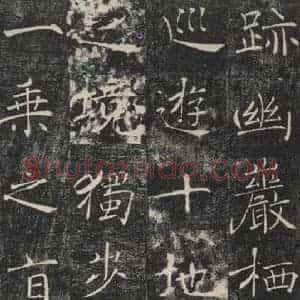 跡幽巖栖
巡遊十地
之境獨步
一乘之旨
Shufaziliao.com